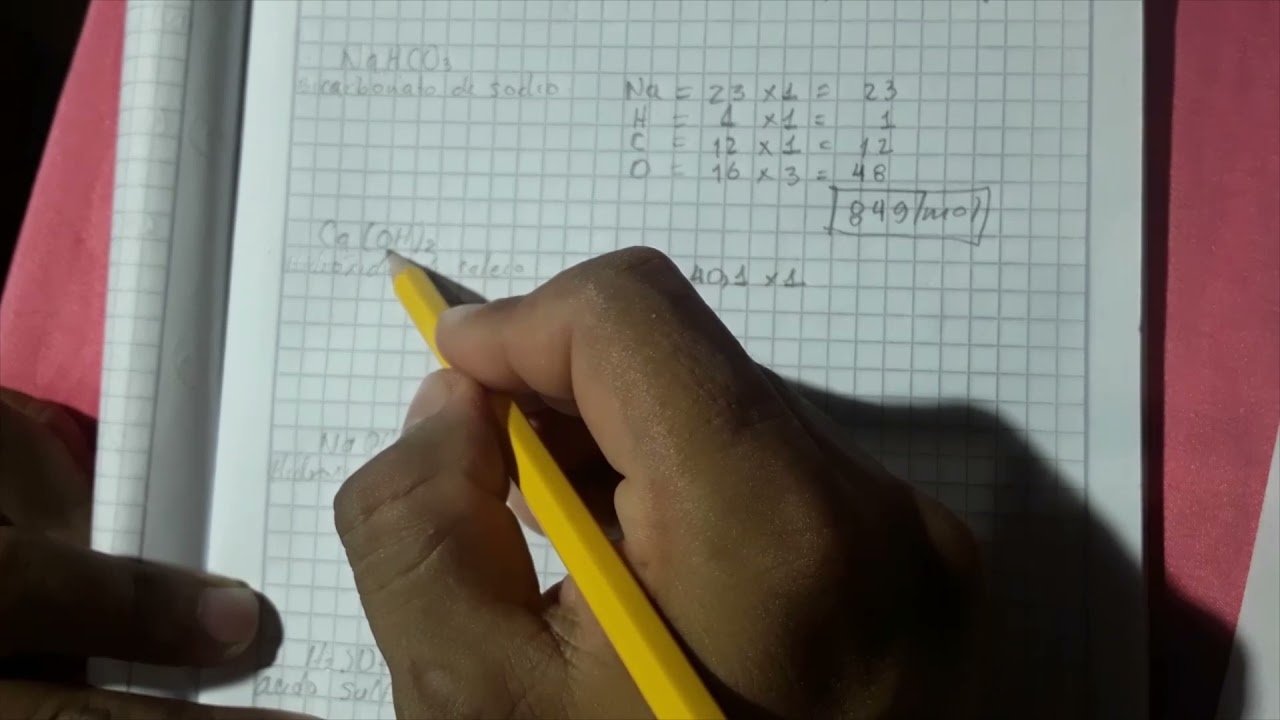 NaHCO3
Bicarbonato de sodio
Na = 23 x 1 = 23
H = 1 x 1 = 1
C = 12 x 1 = 12
O = 16 x 3 = 48
84g/mol
Ca(OH)2
calcio
40,1 x 1
Na
H2SO
acido sulf